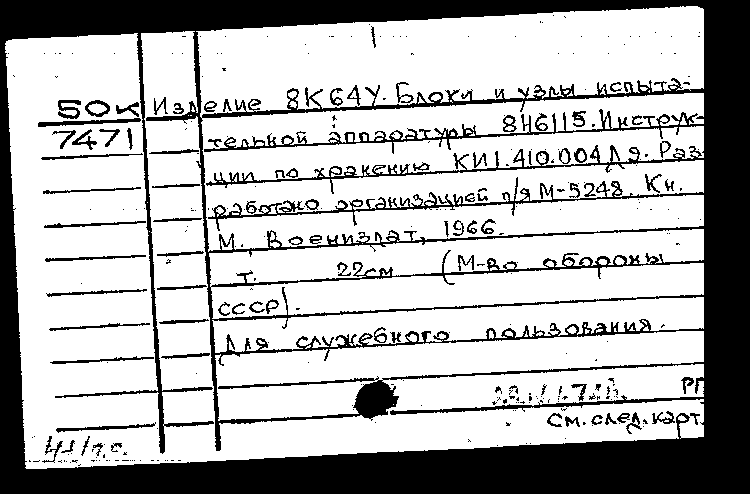 50к Изделие 8К64У. Блоки и узлы испыта-
7471 тельной аппаратуры 8Н6115. Инструк-
ции по хранению КИ1.410.004Дя. Раз-
работано организацией п/я М-5248. Кн.
М., Воениздат, 1966.
т. 22см (М-во обороны
СССР).
Для служебного пользования.
РП
См. след. карт.